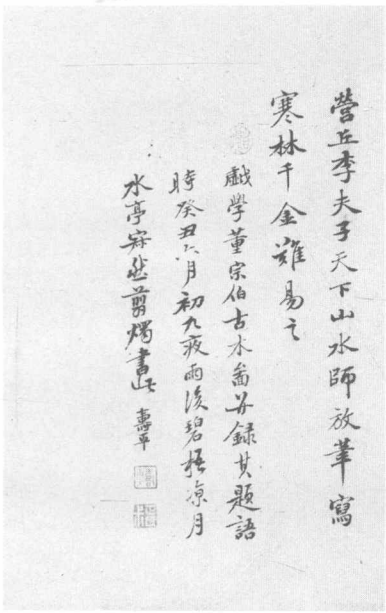 營丘李夫子天下山水師放筆寫
寒林千金難易之
戲學董宗伯古木圖并録其題語
時癸丑六月初九夜雨後碧梧涼月
水亭寂然剪燭書此 壽平